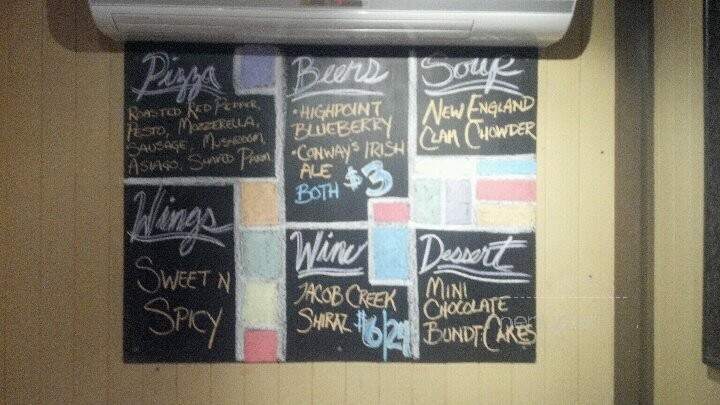 Pizza
Roasted Red Pepper,
Pesto, Mozzerella,
Sausage, Musroom,
Asiago, Shaved Parm
Beers
• Highpoint
Blueberry
• Conway's Irish
Ale
Both $3
Soup
New England
Clam Chowder
Wings
Sweet N
Spicy
Wine
Jacob Creek
Shiraz $6/24
Dessert
Mini
Chocolate
Bundt Cakes